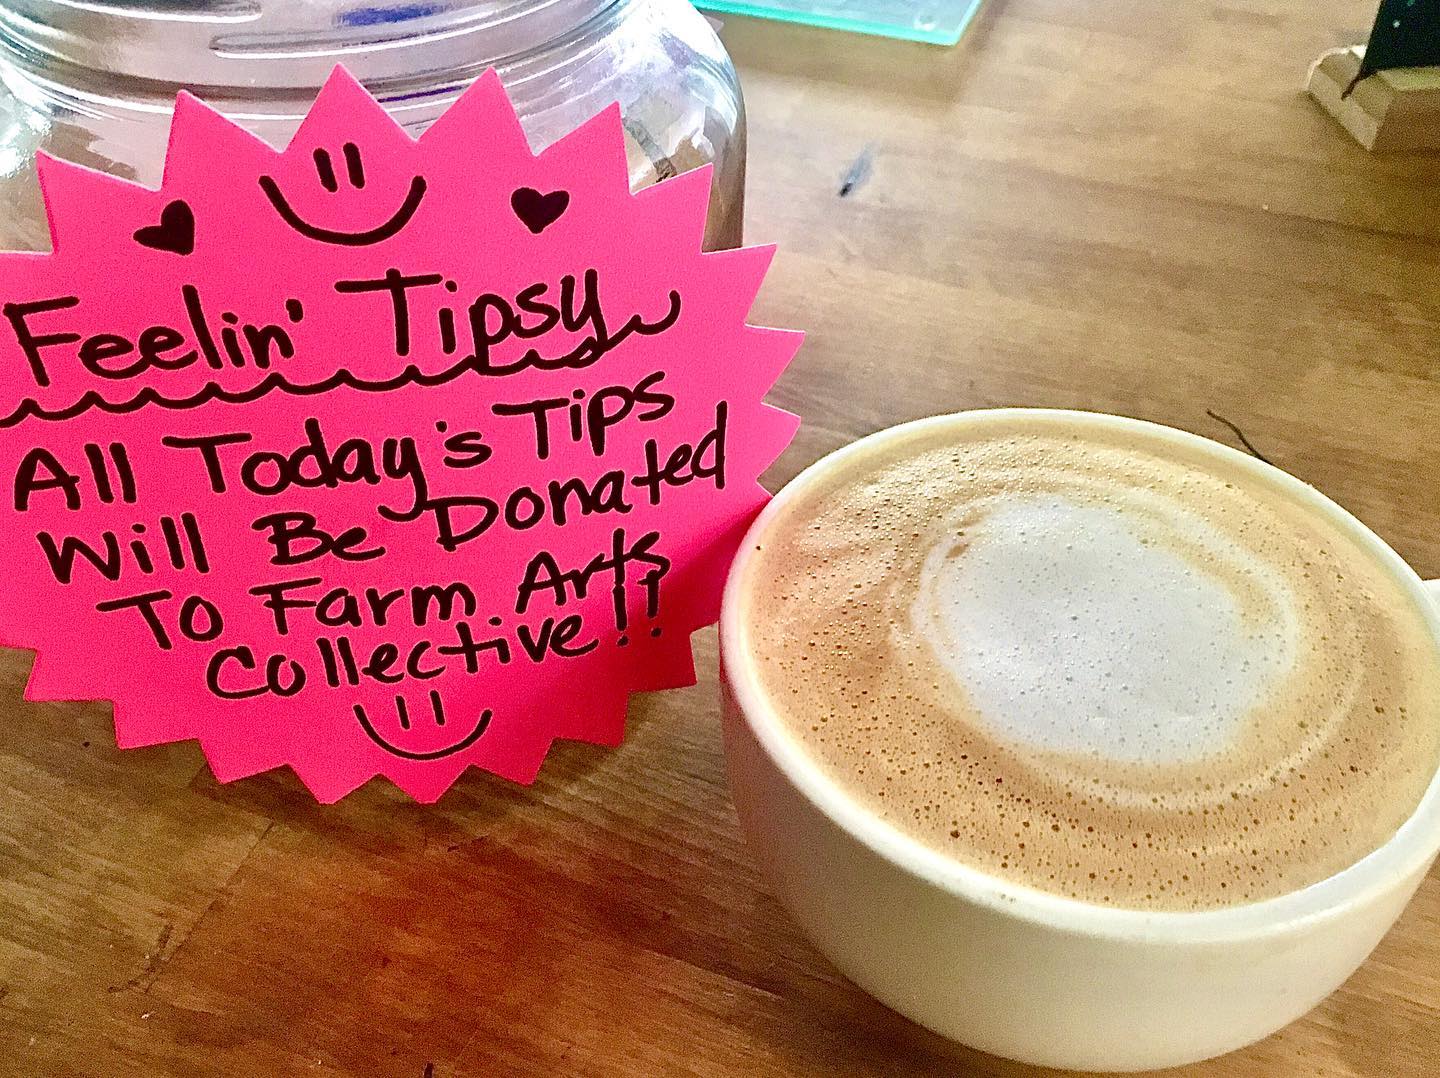 Feelin' Tipsy
All Today's Tips
Will Be Donated
To Farm Arts
Collective!!